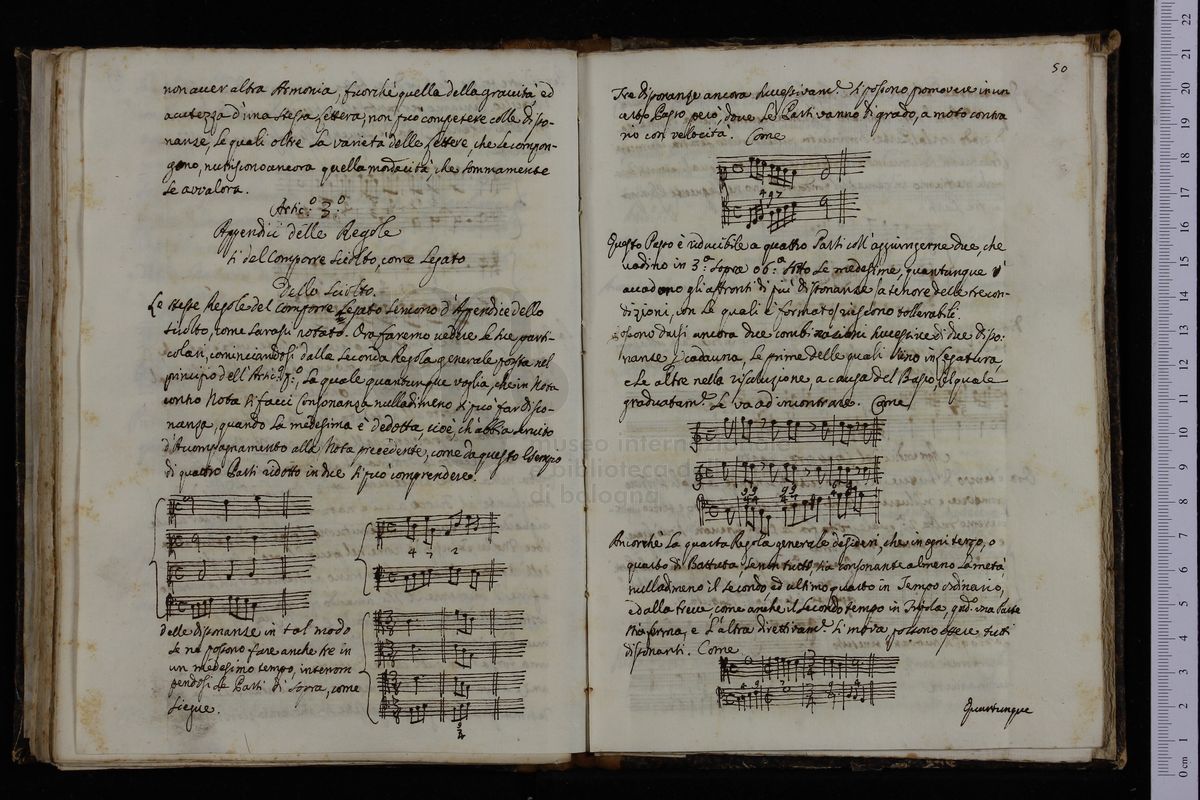 non aver altra Armonia, fuorchè quella della gravità, ed
acutezza d'una stessa Lettera, non può competere colle disso-
nanze, le quali oltre la varietà delle Lettere, che le compon-
gono, nutriscono ancora quella mordacità, che sommamente
le avvalora.
Artic:º 3:º
Appendici delle Regole
sì del Comporre sciolto, come Legato
Dello Sciolto.
Le stesse Regole del Comporre Legato servono d'Appendice dello
sciolto, come sarassi notato. Ora faremo vedere le sue parti-
colari, cominciandosi dalla seconda Regola generale posta nel
principio dell'Artic:º, la quale quantunque voglia, che in Nota
contro Nota si facci Consonanza nulladimeno si può far disso-
nanza, quando la medesima è dedotta, cioè, ch'abbia servito
d'Accompagnamento alla Nota precedente, come da questo Esempo
di quattro Parti ridotto in due si può comprendere.
4 2 2
delle dissonanze in tal modo
se ne possono fare anche tre in
un medesimo tempo, interrom
pendosi le Parti di sopra, come
siegue.
50
Tre dissonanze ancora successivam.e si possono promovere in un
certo Passo, però, dove le Parti vanno di grado, a moto contra
rio con velocità. Come
4 9 7
Questo Passo è riducibile a quattro Parti coll'aggiungerne due, che
vadino in 3.a sopra o 6.a sotto le medesime, quantunque v'
accadono gli affronti di più dissonanze a tenore delle tre con-
dizioni, con le quali è formato riescono tollerabili.
ossono darsi ancora due combinazioni successive di due disso-
nanze cadauna, le prime delle quali sieno in Legatura,
e le altre nella risoluzione, a causa del Basso, il quale
graduatam.e le va ad incontrare. Come
Ancorchè la quarta Regola generale desideri, che in ogni terzo, o
quarto di Battuta, se non tutto sia consonante almeno la metà,
nulladimeno il secondo, ed ultimo quarto in Tempo ordinario,
ed alla breve, come anche il secondo tempo in Tripola, qd.o una Parte
stia ferma, e l'altra direttivam.e si mova possono essere tutti
dissonanti. Come
Quantunque
museo internazionale
e biblioteca della
di bologna
0 cm 1 2 3 4 5 6 7 8 9 10 11 12 13 14 15 16 17 18 19 20 21 22